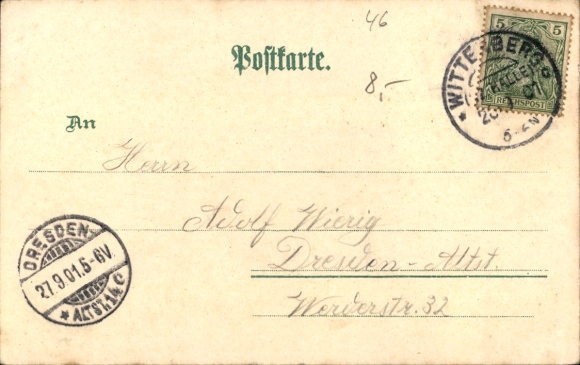 46
Postkarte.
8,-
5 5
REICHSPOST
WITTENBERG
HALLE
01
An
Herrn
Adolf Wierig
Dresden-Altst.
Werderstr. 32
DRESDEN-
27.9.01.5-6V.
* ALTST.14 c